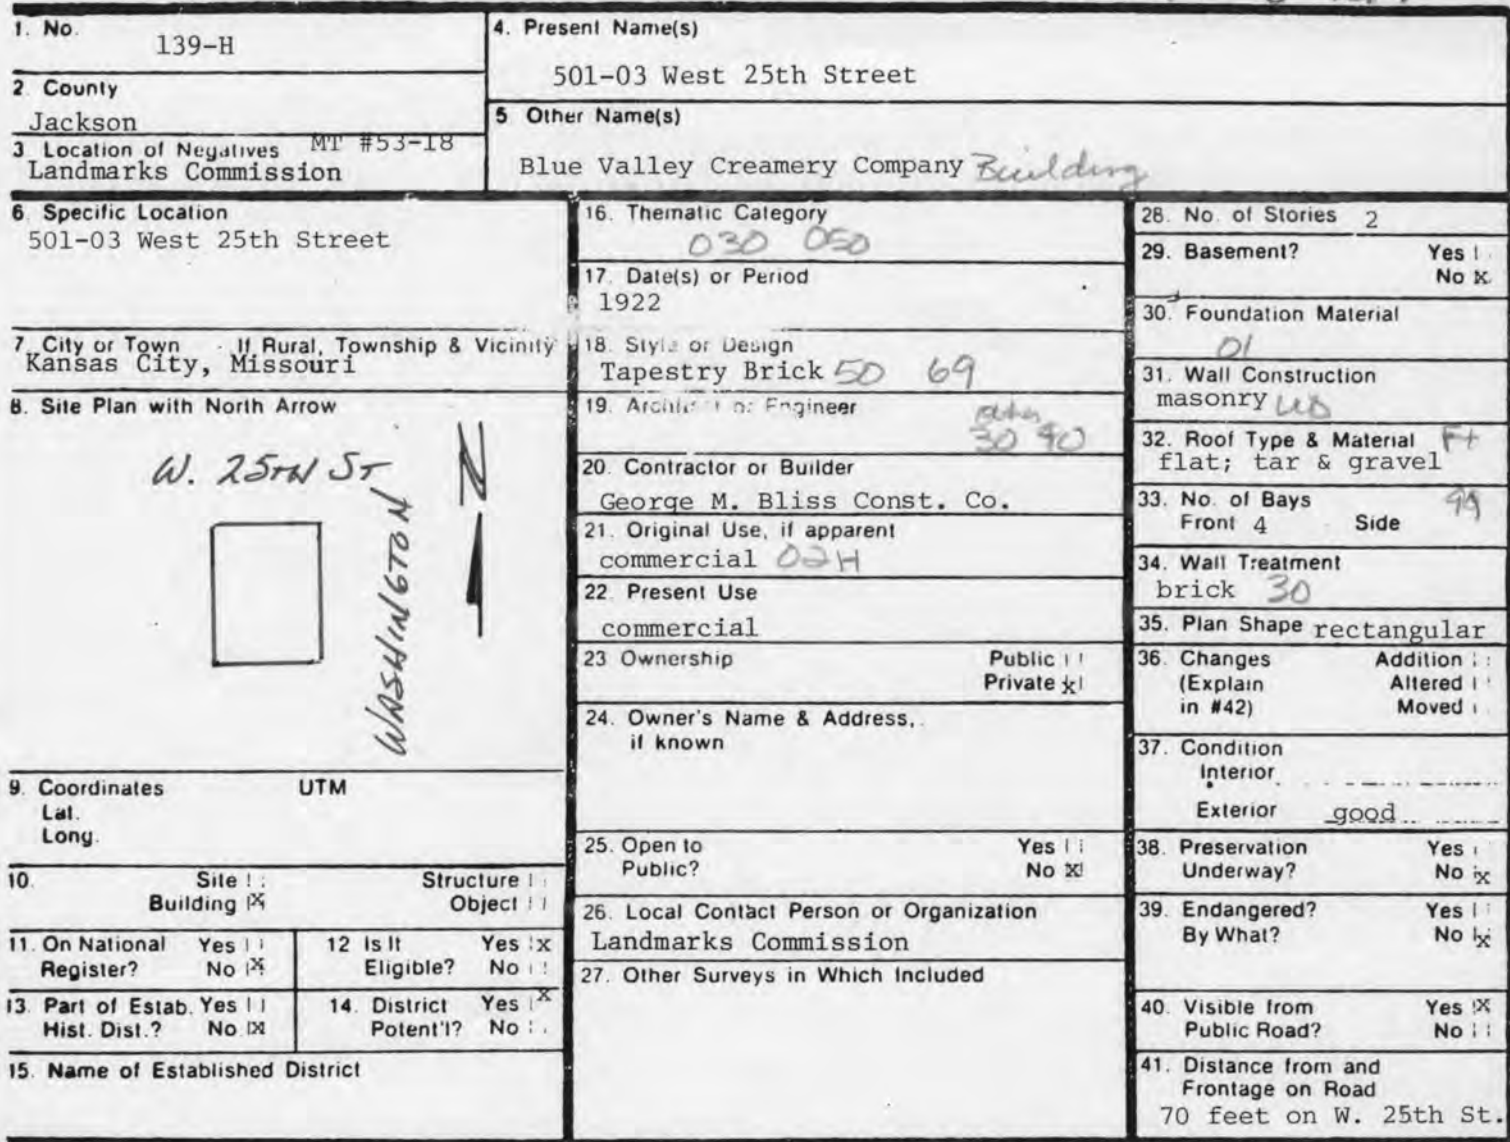 1. No.
139-H
2. County
Jackson
3. Location of Negatives MT #53-18
Landmarks Commission
4. Present Name(s)
501-03 West 25th Street
5 Other Name(s)
Blue Valley Creamery Company Building
6. Specific Location
501-03 West 25th Street
7. City or Town If Rural, Township & Vicinity
Kansas City, Missouri
8. Site Plan with North Arrow
W. 25TH ST
N
WASHINGTON
9. Coordinates UTM
Lat.
Long.
10. Site Structure
Building X Object
11. On National Yes
Register? No X
12 Is It Yes X
Eligible? No
13. Part of Estab. Yes
Hist. Dist.? No X
14. District Yes X
Potent'l? No
15. Name of Established District
16. Thematic Category
030 050
17. Date(s) or Period
1922
18. Style or Design
Tapestry Brick 50 69
19. Architect or Engineer
30 40
20. Contractor or Builder
George M. Bliss Const. Co.
21. Original Use, if apparent
commercial 02H
22. Present Use
commercial
23 Ownership Public
Private x
24. Owner's Name & Address,
if known
25. Open to Yes
Public? No X
26. Local Contact Person or Organization
Landmarks Commission
27. Other Surveys in Which Included
28. No. of Stories 2
29. Basement? Yes
No X
30. Foundation Material
01
31. Wall Construction
masonry
32. Roof Type & Material Ft
flat; tar & gravel
33. No. of Bays
Front 4 Side 99
34. Wall Treatment
brick 30
35. Plan Shape rectangular
36. Changes Addition
(Explain Altered
in #42) Moved
37. Condition
Interior
Exterior good
38. Preservation Yes
Underway? No X
39. Endangered? Yes
By What? No X
40. Visible from Yes X
Public Road? No
41. Distance from and
Frontage on Road
70 feet on W. 25th St.